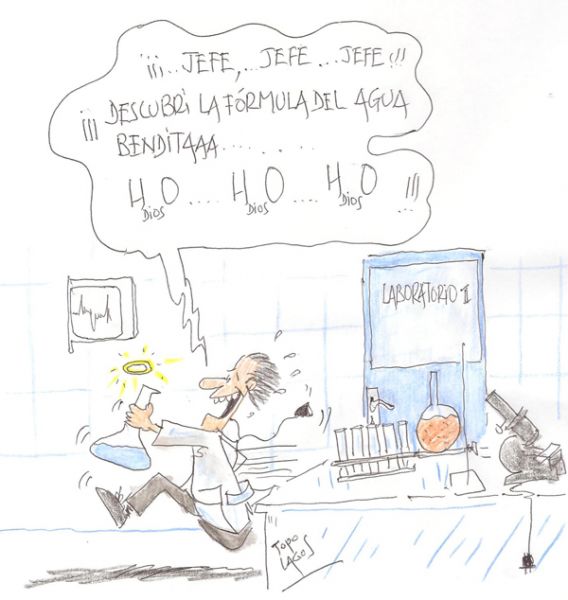 ¡¡¡...JEFE,...JEFE...JEFE!!!
¡¡¡DESCUBRI LA FÓRMULA DEL AGUA
BENDITAAA.......
H DIOS O.....H DIOS O....H DIOS O...!!!
LABORATORIO 1
TOPO
LAGOS